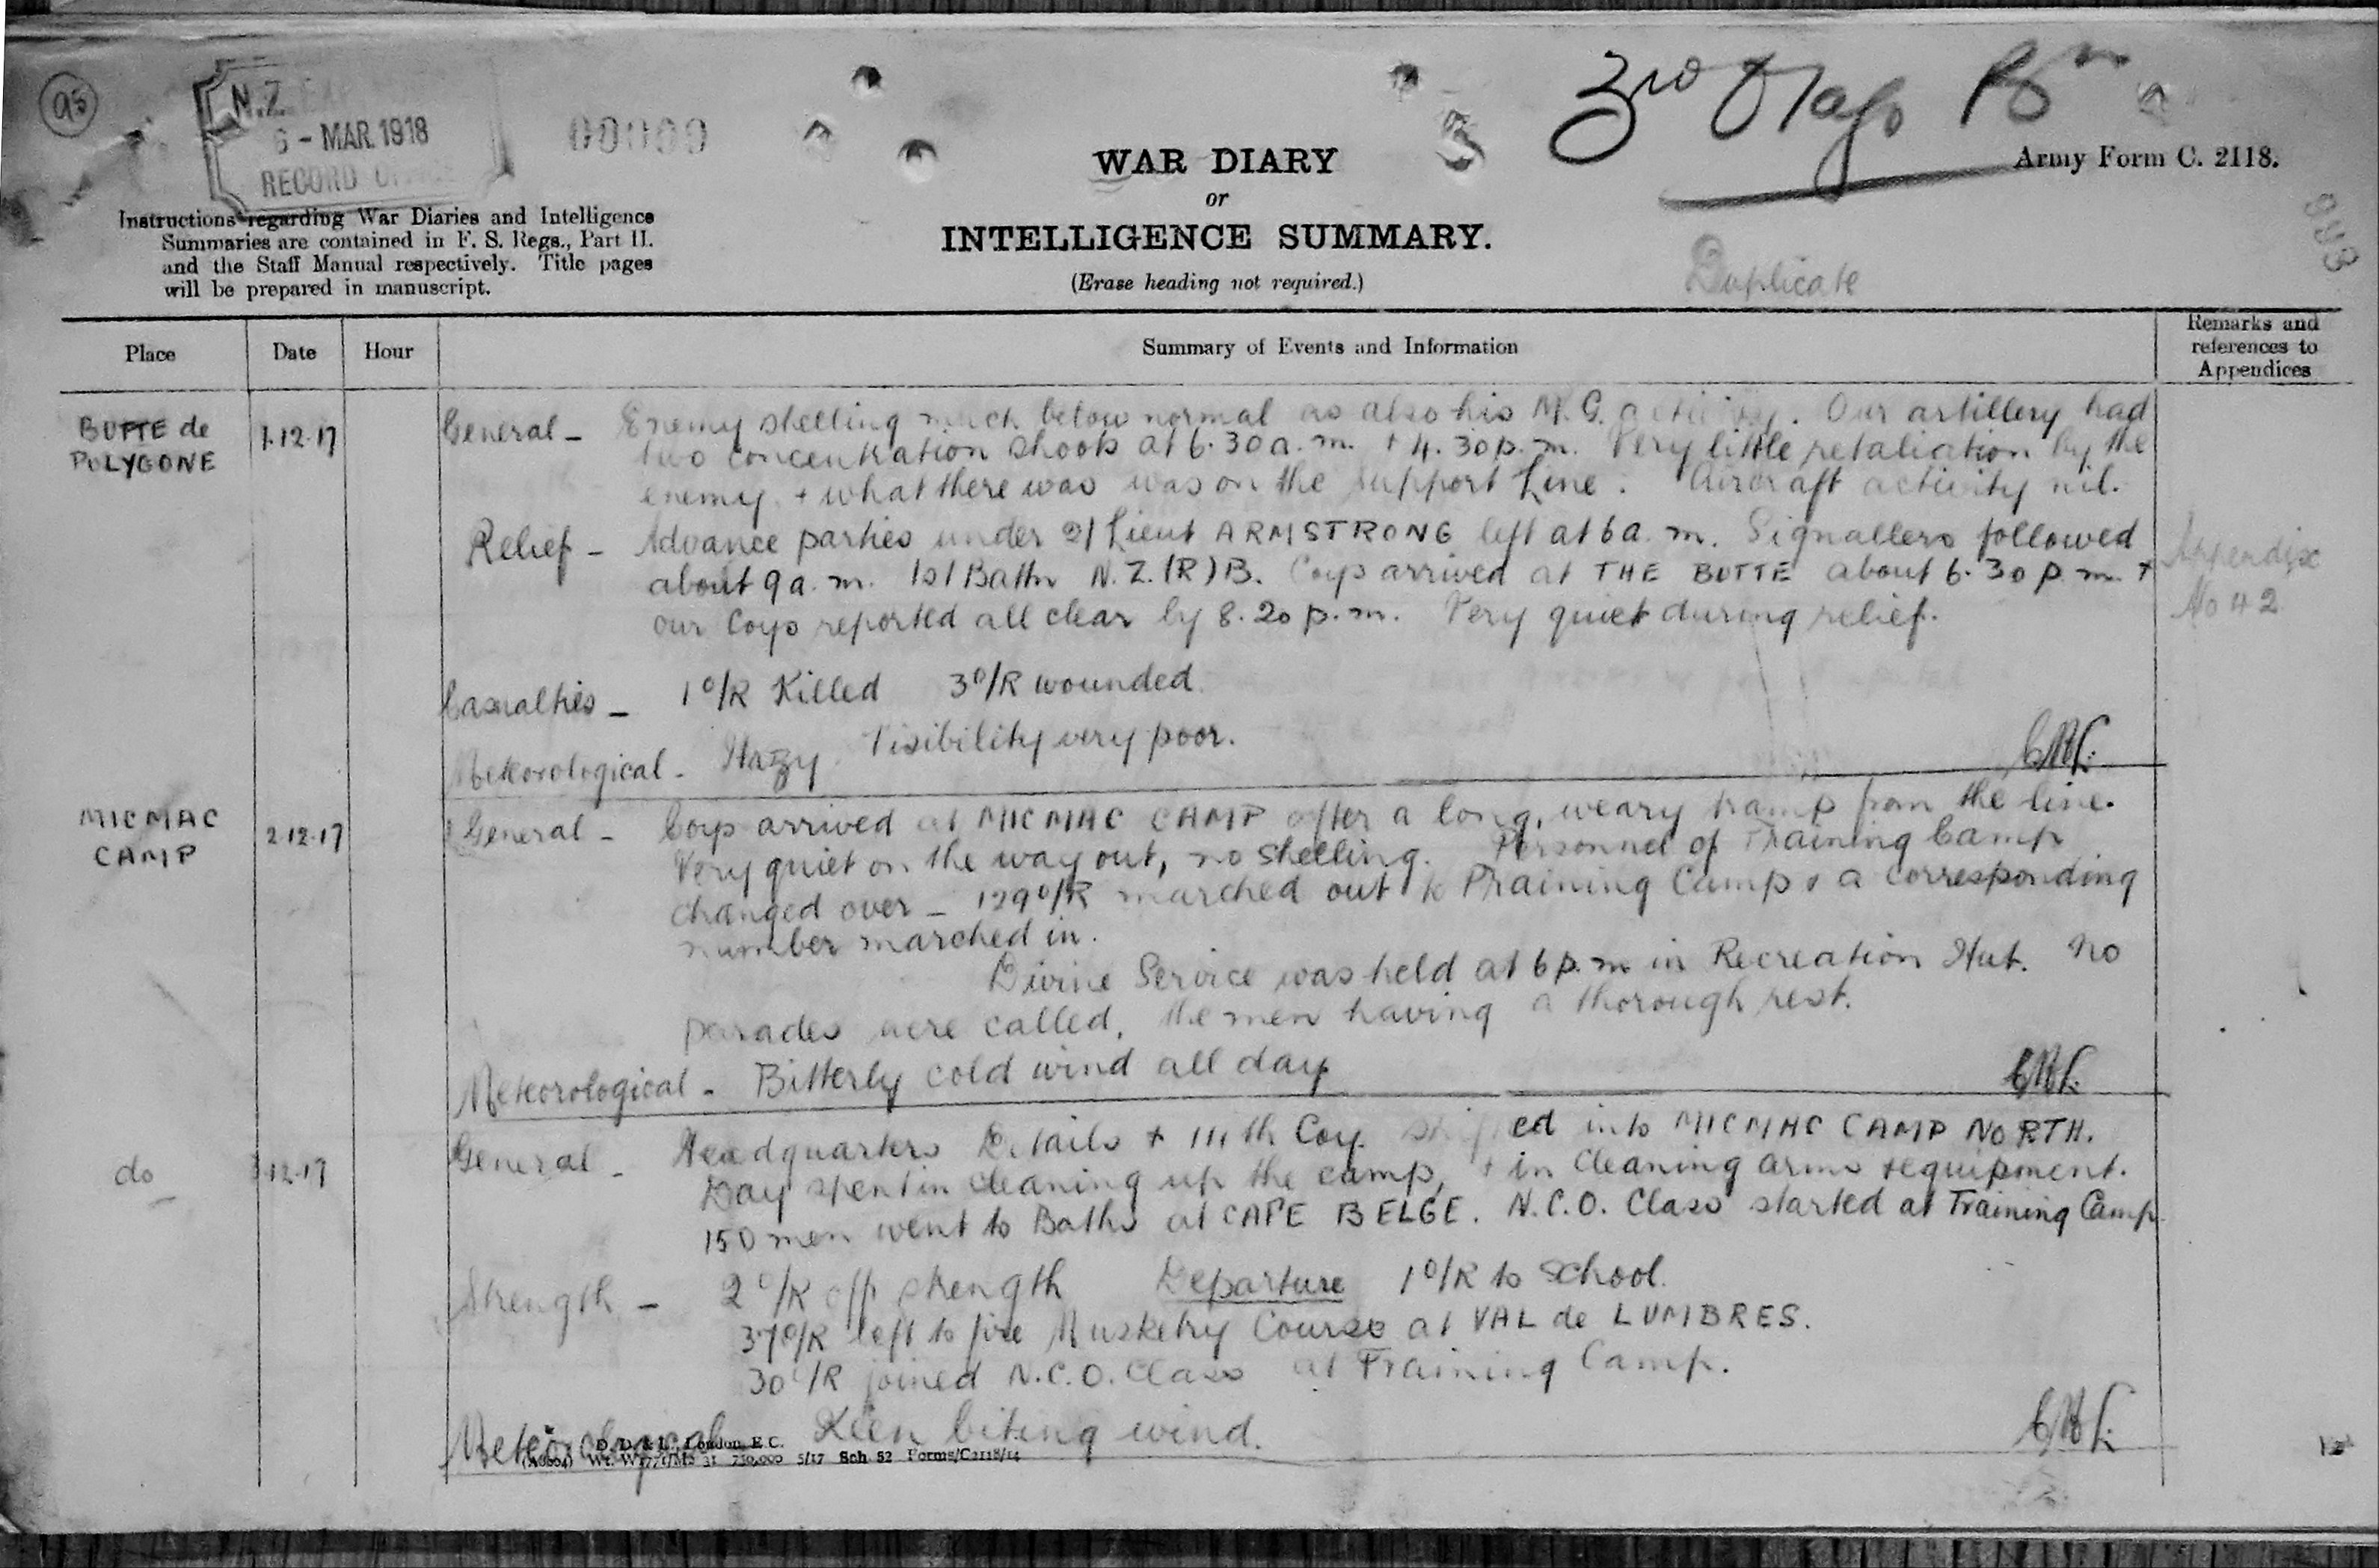 95
N.Z.
6 - MAR. 1918
RECORD
00009
3
3rd Otago Bn
WAR DIARY
or
INTELLIGENCE SUMMARY.
(Erase heading not required.)
Army Form C. 2118.
Duplicate
Instructions regarding War Diaries and Intelligence
Summaries are contained in F. S. Regs., Part II.
and the Staff Manual respectively. Title pages
will be prepared in manuscript.
Place Date Hour Summary of Events and Information Remarks and
references to
Appendices
BUTTE de
POLYGONE
1.12.17
General - Enemy shelling much below normal as also his M.G. activity. Our artillery had
two concentration shoots at 6.30 a.m. + 4.30 p.m. Very little retaliation by the
enemy, + what there was was on the support Line. Aircraft activity nil.
Relief - Advance parties under 2/Lieut ARMSTRONG left at 6 a.m. Signallers followed
about 9 a.m. 1st Battn N.Z.(R)B. Coys arrived at THE BUTTE about 6.30 p.m. +
our Coys reported all clear by 8.20 p.m. Very quiet during relief.
Appendix
No 42
Casualties - 1 O/R Killed 3 O/R wounded.
Meteorological - Hazy. Visibility very poor.
MICMAC
CAMP
2.12.17
General - Coys arrived at MICMAC CAMP after a long, weary tramp from the line.
Very quiet on the way out, no shelling. Personnel of Training Camp
changed over - 129 O/R marched out to Training Camp + a corresponding
number marched in.
Divine Service was held at 6 p.m in Recreation Hut. No
parades were called, the men having a thorough rest.
Meteorological - Bitterly cold wind all day
do
3.12.17
General - Headquarters Details + 14th Coy shifted into MICMAC CAMP NORTH.
Day spent in cleaning up the camp, + in cleaning arms + equipment.
150 men went to Baths at CAPE BELGE. N.C.O. Class started at Training Camp
Strength - 2 O/R off strength Departure 1 O/R to School.
37 O/R left to fire Musketry Course at VAL de LUMBRES.
30 O/R joined N.C.O. Class at Training Camp.
Meteorological - Keen biting wind.
D. D. & L., London, E.C.
5/17 Sch 52 Forms/C2118/14